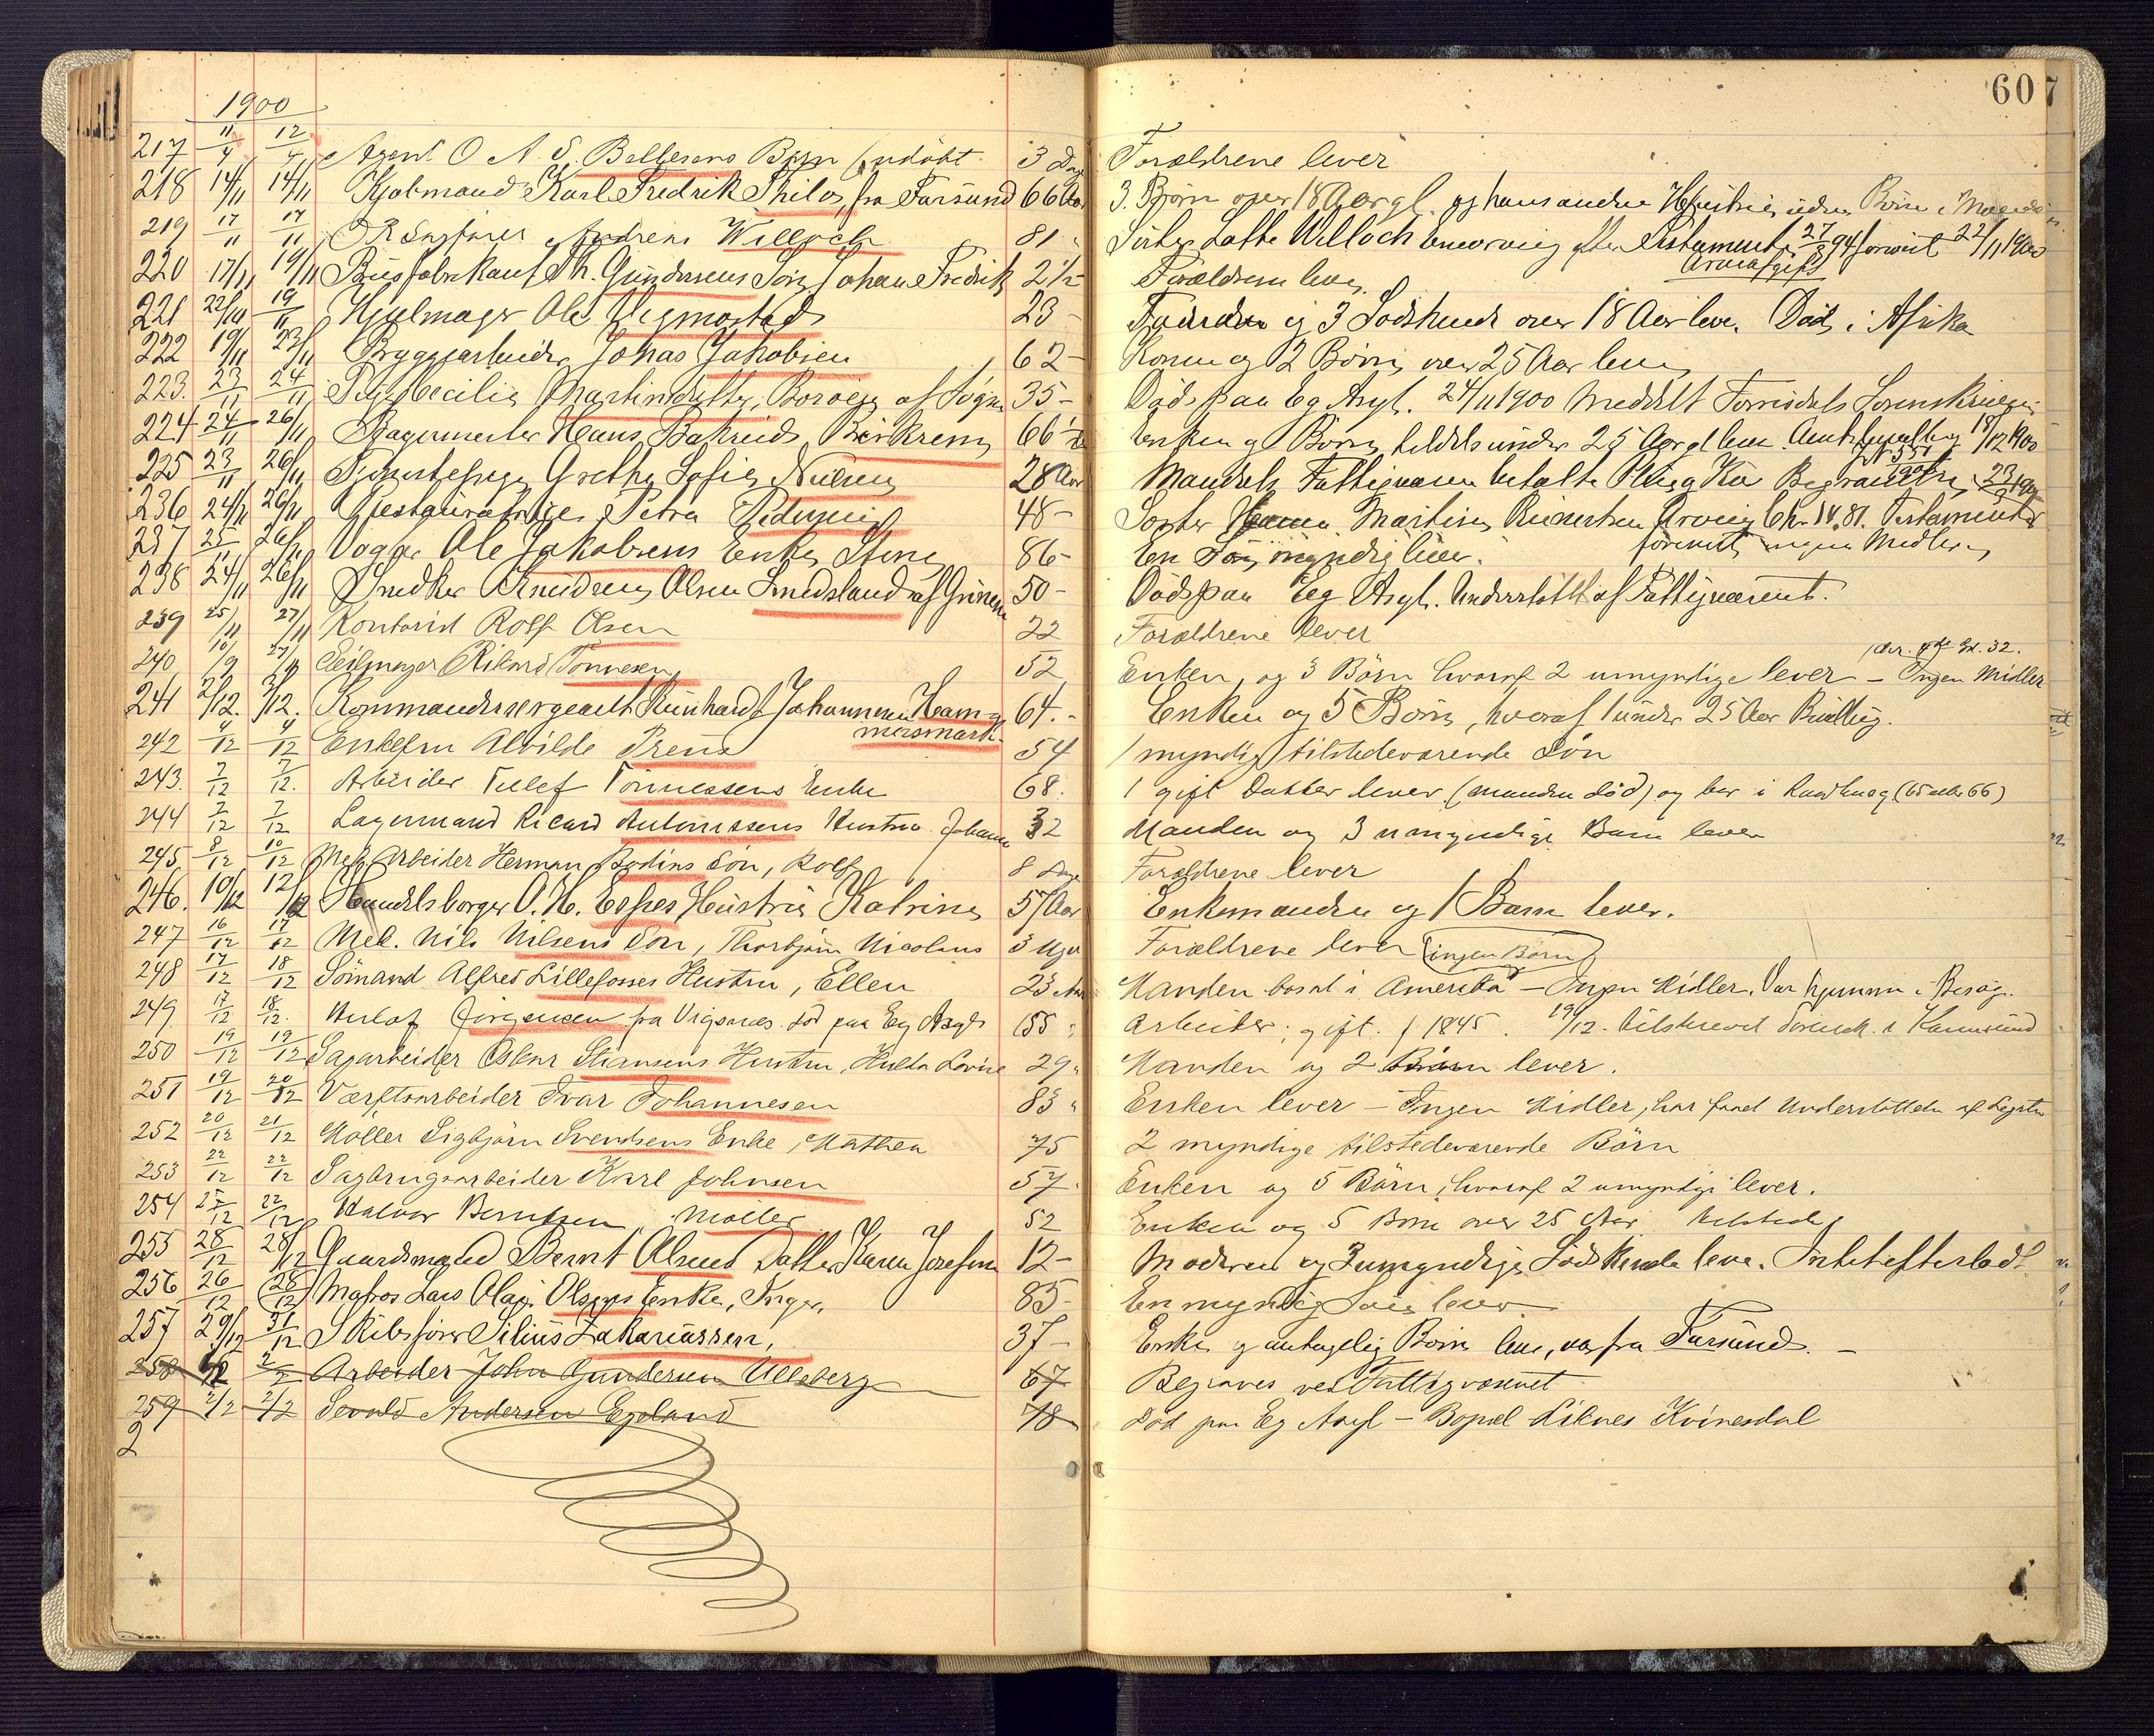 607
1900
217 11/4 12/4 Agent O. A. S. Bellesens Barn (udöbt 3 Dage Forældrene lever
218 14/11 14/11 Kjøbmand Karl Fredrik Thilo, fra Farsund 66 Aar 3. Børn over 18 Aar gl. og hans anden Hustru, uden Børn
219 17/11 17/11 Andreas Willoch 81 Søster Lotte Willoch enearving efter Testament 27/3 94 forevist 22/11 1900
Arveafgift
220 17/11 19/11 Th. Gundersens Søn Johan Fredrik 2 1/2 Forældrene lever
221 22/10 19/11 Hjulmager Ole Vegmostad 23 - og 3 Sødskende over 18 Aar lever. Död i Afrika
222 19/11 23/11 Bryggearbeider Johas Jakobsen 62 - Konen og 2 Børn over 25 Aar lever
223. 23/11 24/11 Pige Cecilie Martinsdatter, af Søgne 35 - Död paa Eg Asyl. 24/11 1900 Meddelt Torrisdals Sorenskriver
224 24/11 26/11 Bagermester Hans Bakeids Birkrem 66 Enken og Børn, tildels under 25 Aar gl lever. 18/12 1900
225 23/11 26/11 Tjenestepige Grethe Sofie Nielsen 28 Aar Mandals Fattigvæsen betalte Pleie og Kur
236 24/11 26/11 Petra Pedersen 48 - Søster Martine Reinertsen Arving Testamente
forevist, ingen Midler
237 25/11 26/11 Ole Jakobsens Enke, Stine 86 - En Søn, myndig lever.
238 24/11 26/11 Snedker Knud Olsen Smedsland af Grinem 50 - Död paa Eg Asyl. Understöttet af Fattigvæsenet.
239 25/11 27/11 Kontorist Rolf Olsen 22 Forældrene lever
240 10/9 27/11 Seilmager Rikard Tönnesen 52 Enken, og 3 Børn hvoraf 2 umyndige lever - Ingen Midler
241 2/12. 3/12. Kommandersergeant Reinhardt Johannesen Ham- 64. - Enken og 5 Børn, hvoraf 1 under 25 Aar
mersmark.
242 4/12 4/12 Enkefru Alvilde Prens 54 1 myndig tilstedeværende Søn
243. 7/12 7/12. Arbeider Tellef Tönnessens Enke 68. 1 gift Datter lever (manden död) og bor i (65 eller 66)
244 7/12 7/12 Lagermand Ricard Antonissens Hustru Johanne 32 Manden og 3 umyndige Barn lever
245. 8/12 10/12 Mek. Arbeider Herman Bodins Sön, Rolf 8 Dage Forældrene lever
246. 10/12 12/12 Handelsborger O. H. Espes Hustru Katrine 57 Aar Enkemanden og 1 Barn lever.
247 16/12 17/12 Mek. Nils Nilsens Sön, Thorbjörn Nicolaus 3 Uger Forældrene lever
(ingen Børn)
248 17/12 18/12 Sömand Alfred Lillefosses Hustru, Ellen 23 Aar Manden bosat i Amerika - Ingen Midler. Var hjemme i Besøg.
249. 17/12 18/12. Herlof Jörgensen fra Vigsnes. död paa Eg Asyl 55 Arbeider, gift. f 1845. 19/12. tilskrevet Sorensk. i Karmsund
250 19/12 19/12 Sagarbeider Oskar Stiansens Hustru, Hulda Lovise 29 Manden og 2 Børn lever.
251 19/12 20/12 Værftsarbeider Ivar Johannesen 83 Enken lever - Ingen Midler, har faaet Understöttelse af Legater
252 20/12 21/12 Möller Sigbjörn Svendsens Enke, Mathea 75 2 myndige tilstedeværende Börn
253 22/12 22/12 Sagbrugsarbeider Karl Johnsen 57. Enken og 5 Börn, hvoraf 2 umyndige lever.
254 22/12 Halvor Berntsen, Møller 52 Enken og 5 Børn over 25 Aar tilstede
255 28/12 28/12 Gaardmand Bernt Olsens Datter Karen Josefine 12 - Moderen og 3 umyndige Sødskende lever. Intet efterladt
256 26/12 28/12 Matros Lars Olai Olsens Enke, Inger, 85 - En myndig Søn lever
257 29/12 31/12 Skibsfører Silius Zakariassen, 37 - Enke og antagelig Børn lever, var fra Farsund. -
258 2/2 Arbeider John Gundersen Ulleberg 67 Begraves ved Fattigvæsenet
259 2/2 2/2 Sevald Andersen Egeland 78 Død paa Eg Asyl - Bopæl Liknes Kvinesdal
2